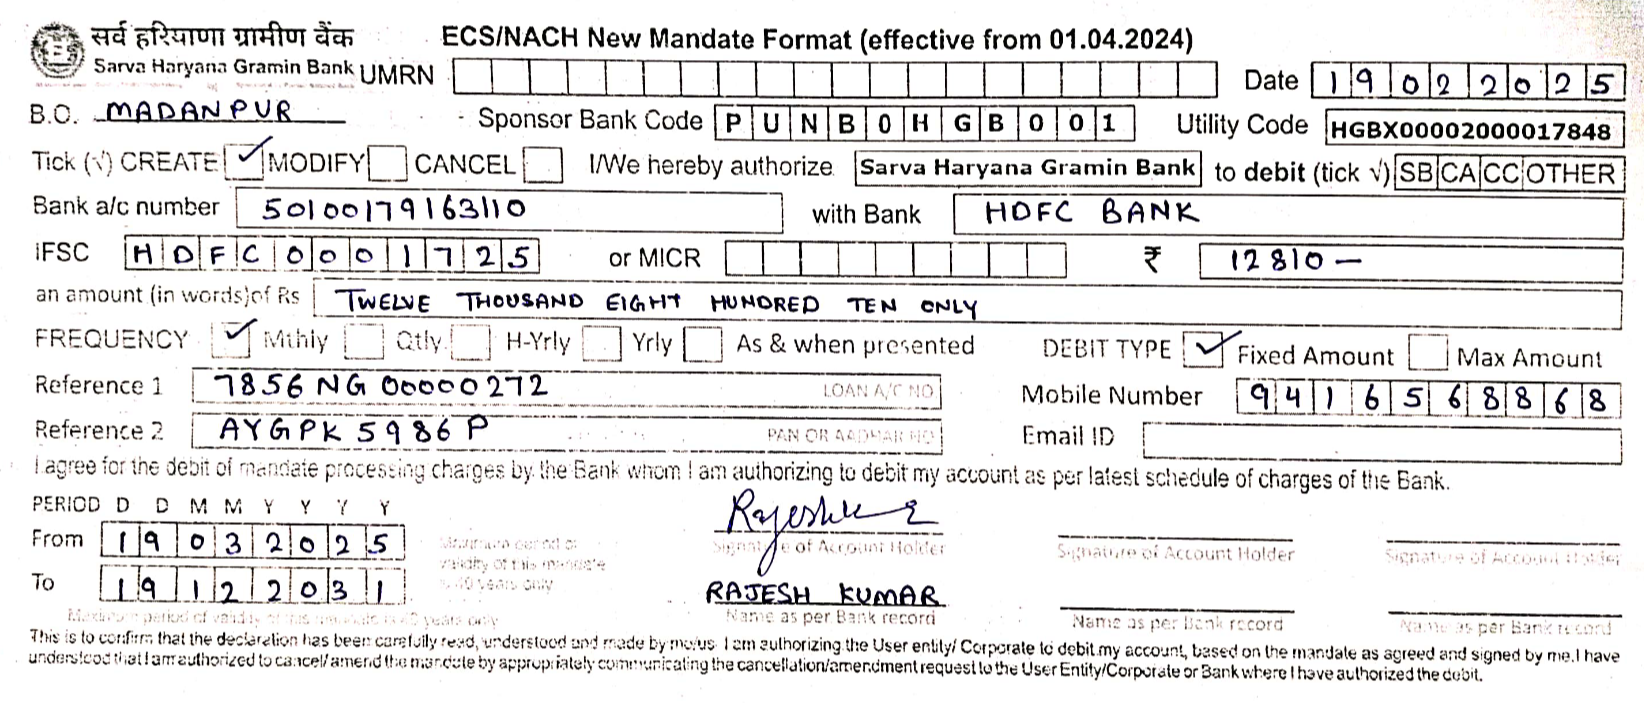 सर्व हरियाणा ग्रामीण बैंक
Sarva Haryana Gramin Bank
ECS/NACH New Mandate Format (effective from 01.04.2024)
UMRN Date 19022025
B.O. MADANPUR Sponsor Bank Code PUNB0HGB001 Utility Code HGBX00002000017848
Tick (√) CREATE ✓ MODIFY CANCEL I/We hereby authorize Sarva Haryana Gramin Bank to debit (tick √) SB CA CC OTHER
Bank a/c number 50100179163110 with Bank HDFC BANK
IFSC HDFC0001725 or MICR ₹ 12810—
an amount (in words) of Rs TWELVE THOUSAND EIGHT HUNDRED TEN ONLY
FREQUENCY ✓ Mthly Qtly H-Yrly Yrly As & when presented DEBIT TYPE ✓ Fixed Amount Max Amount
Reference 1 7856NG00000272 LOAN A/C NO Mobile Number 9416568868
Reference 2 AYGPK5986P PAN OR AADHAR NO Email ID
I agree for the debit of mandate processing charges by the Bank whom I am authorizing to debit my account as per latest schedule of charges of the Bank.
PERIOD D D M M Y Y Y Y
From 19032025
To 19122031
Maximum period of validity of this mandate is 40 years only
Rajeshk
Signature of Account Holder Signature of Account Holder Signature of Account Holder
RAJESH KUMAR
Name as per Bank record Name as per Bank record Name as per Bank record
Maximum period of validity of this mandate is 40 years only
This is to confirm that the declaration has been carefully read, understood and made by me/us. I am authorizing the User entity/ Corporate to debit my account, based on the mandate as agreed and signed by me. I have
understood that I am authorized to cancel/ amend the mandate by appropriately communicating the cancellation/amendment request to the User Entity/Corporate or Bank where I have authorized the debit.